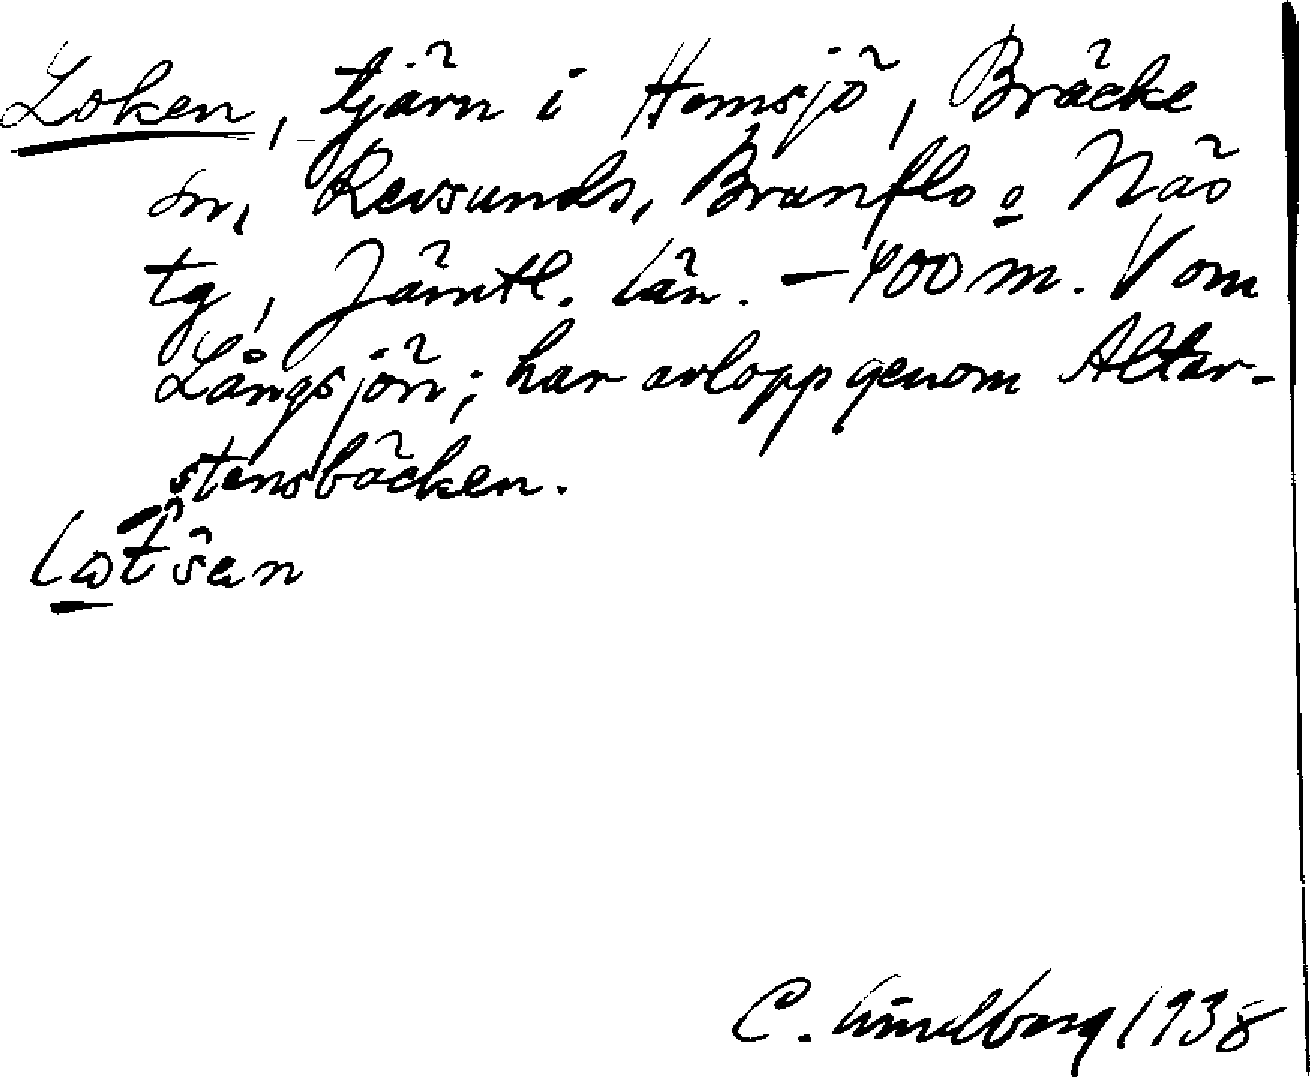 Loken, tjärn i Hemsjö, Bräcke
sn, Revsunds, Brunflo o Näs
tg, Jämtl. län. – 400 m. V om
Långsjön; har avlopp genom Altar-
stensbäcken.
C. Lindberg 1938